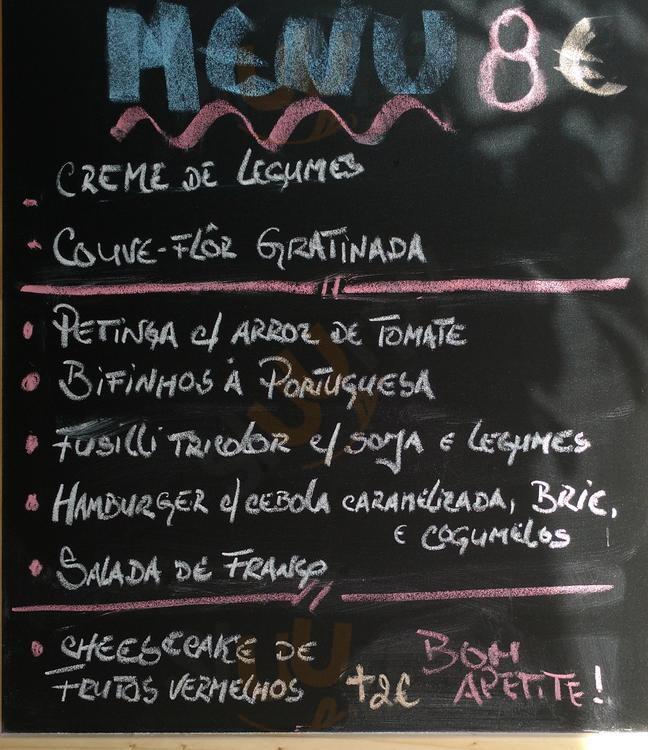 MENU 8€
CREME DE LEGUMES
COUVE-FLÔR GRATINADA
PETINGA C/ ARROZ DE TOMATE
BIFINHOS À PORTUGUESA
FUSILLI TRICOLOR C/ SOJA E LEGUMES
HAMBURGER C/ CEBOLA CARAMELIZADA, BRIE,
E COGUMELOS
SALADA DE FRANGO
CHEESECAKE DE
FRUTOS VERMELHOS +2€
BOM
APETITE!